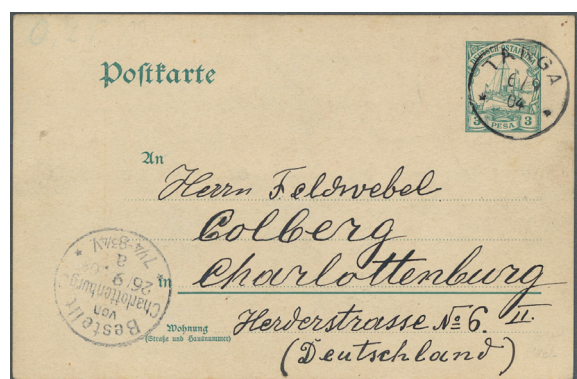 DEUTSCH-OSTAFRIKA
3 PESA 3
TANGA
6/9
04
Postkarte
An
Herrn Feldwebel
Colberg
in Charlottenburg
Wohnung
(Straße und Hausnummer)
Herderstrasse No 6. II.
(Deutschland)
Bestellt
von
Charlottenburg
26/9
a
7¼-8¾V